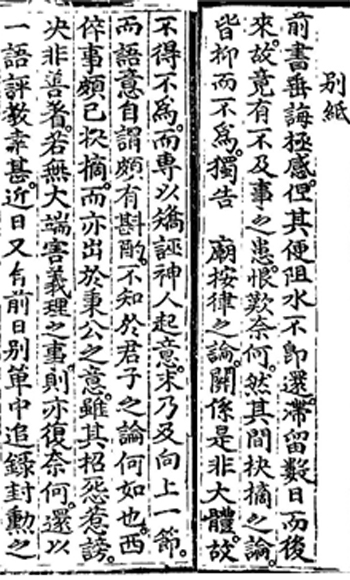 別紙
前書垂誨極感但其便阻水不卽還滯留數日而後
來故竟有不及事之患恨歎奈何然其間抉摘之論
皆抑而不爲獨告 廟按律之論關係是非大體故
不得不爲而專以矯誣神人起意末乃及向上一節
而語意自謂頗有斟酌不知於君子之論何如也西
倅事頗已抉摘而亦出於秉公之意雖其招怨惹謗
決非善者若無大端害義理之事則亦復奈何還以
一語評敎幸甚近日又有前日別單中追錄封勳之